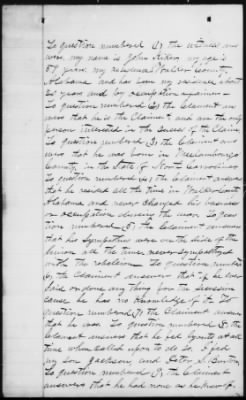 To question numbered (1) the witness ans
wers, my name is John Aiken my age is
59 years, my residence Walker County
Alabama and has been my residence about
25 years and by occupation a farmer —
To question numbered (2) the Claimant ans
wers that he is the Claimant and am the only
person interested in the success of the Claim
To question numbered (3) the Claimant ans
wers that he was born in
County in the State of North Carolina
To question numbered (4) the Claimant answers
that he resided all the time in Walker County
Alabama and never changed his business
or occupation during the war. To ques
tion numbered (5) the Claimant answers
that his sympathies were on the side of the
union all the time, never sympathized
with the rebellion. To question number
(6) the Claimant answers that if he ever
said or done any thing for the secession
cause he has no knowledge of it. To
question numbered (7) the Claimant answers
that he was To question numbered (8) the
Claimant answers that he felt
time when called upon to do so. I
my son Jackson, and
To question numbered (9) the Claimant
answers that he had none as he knew of.